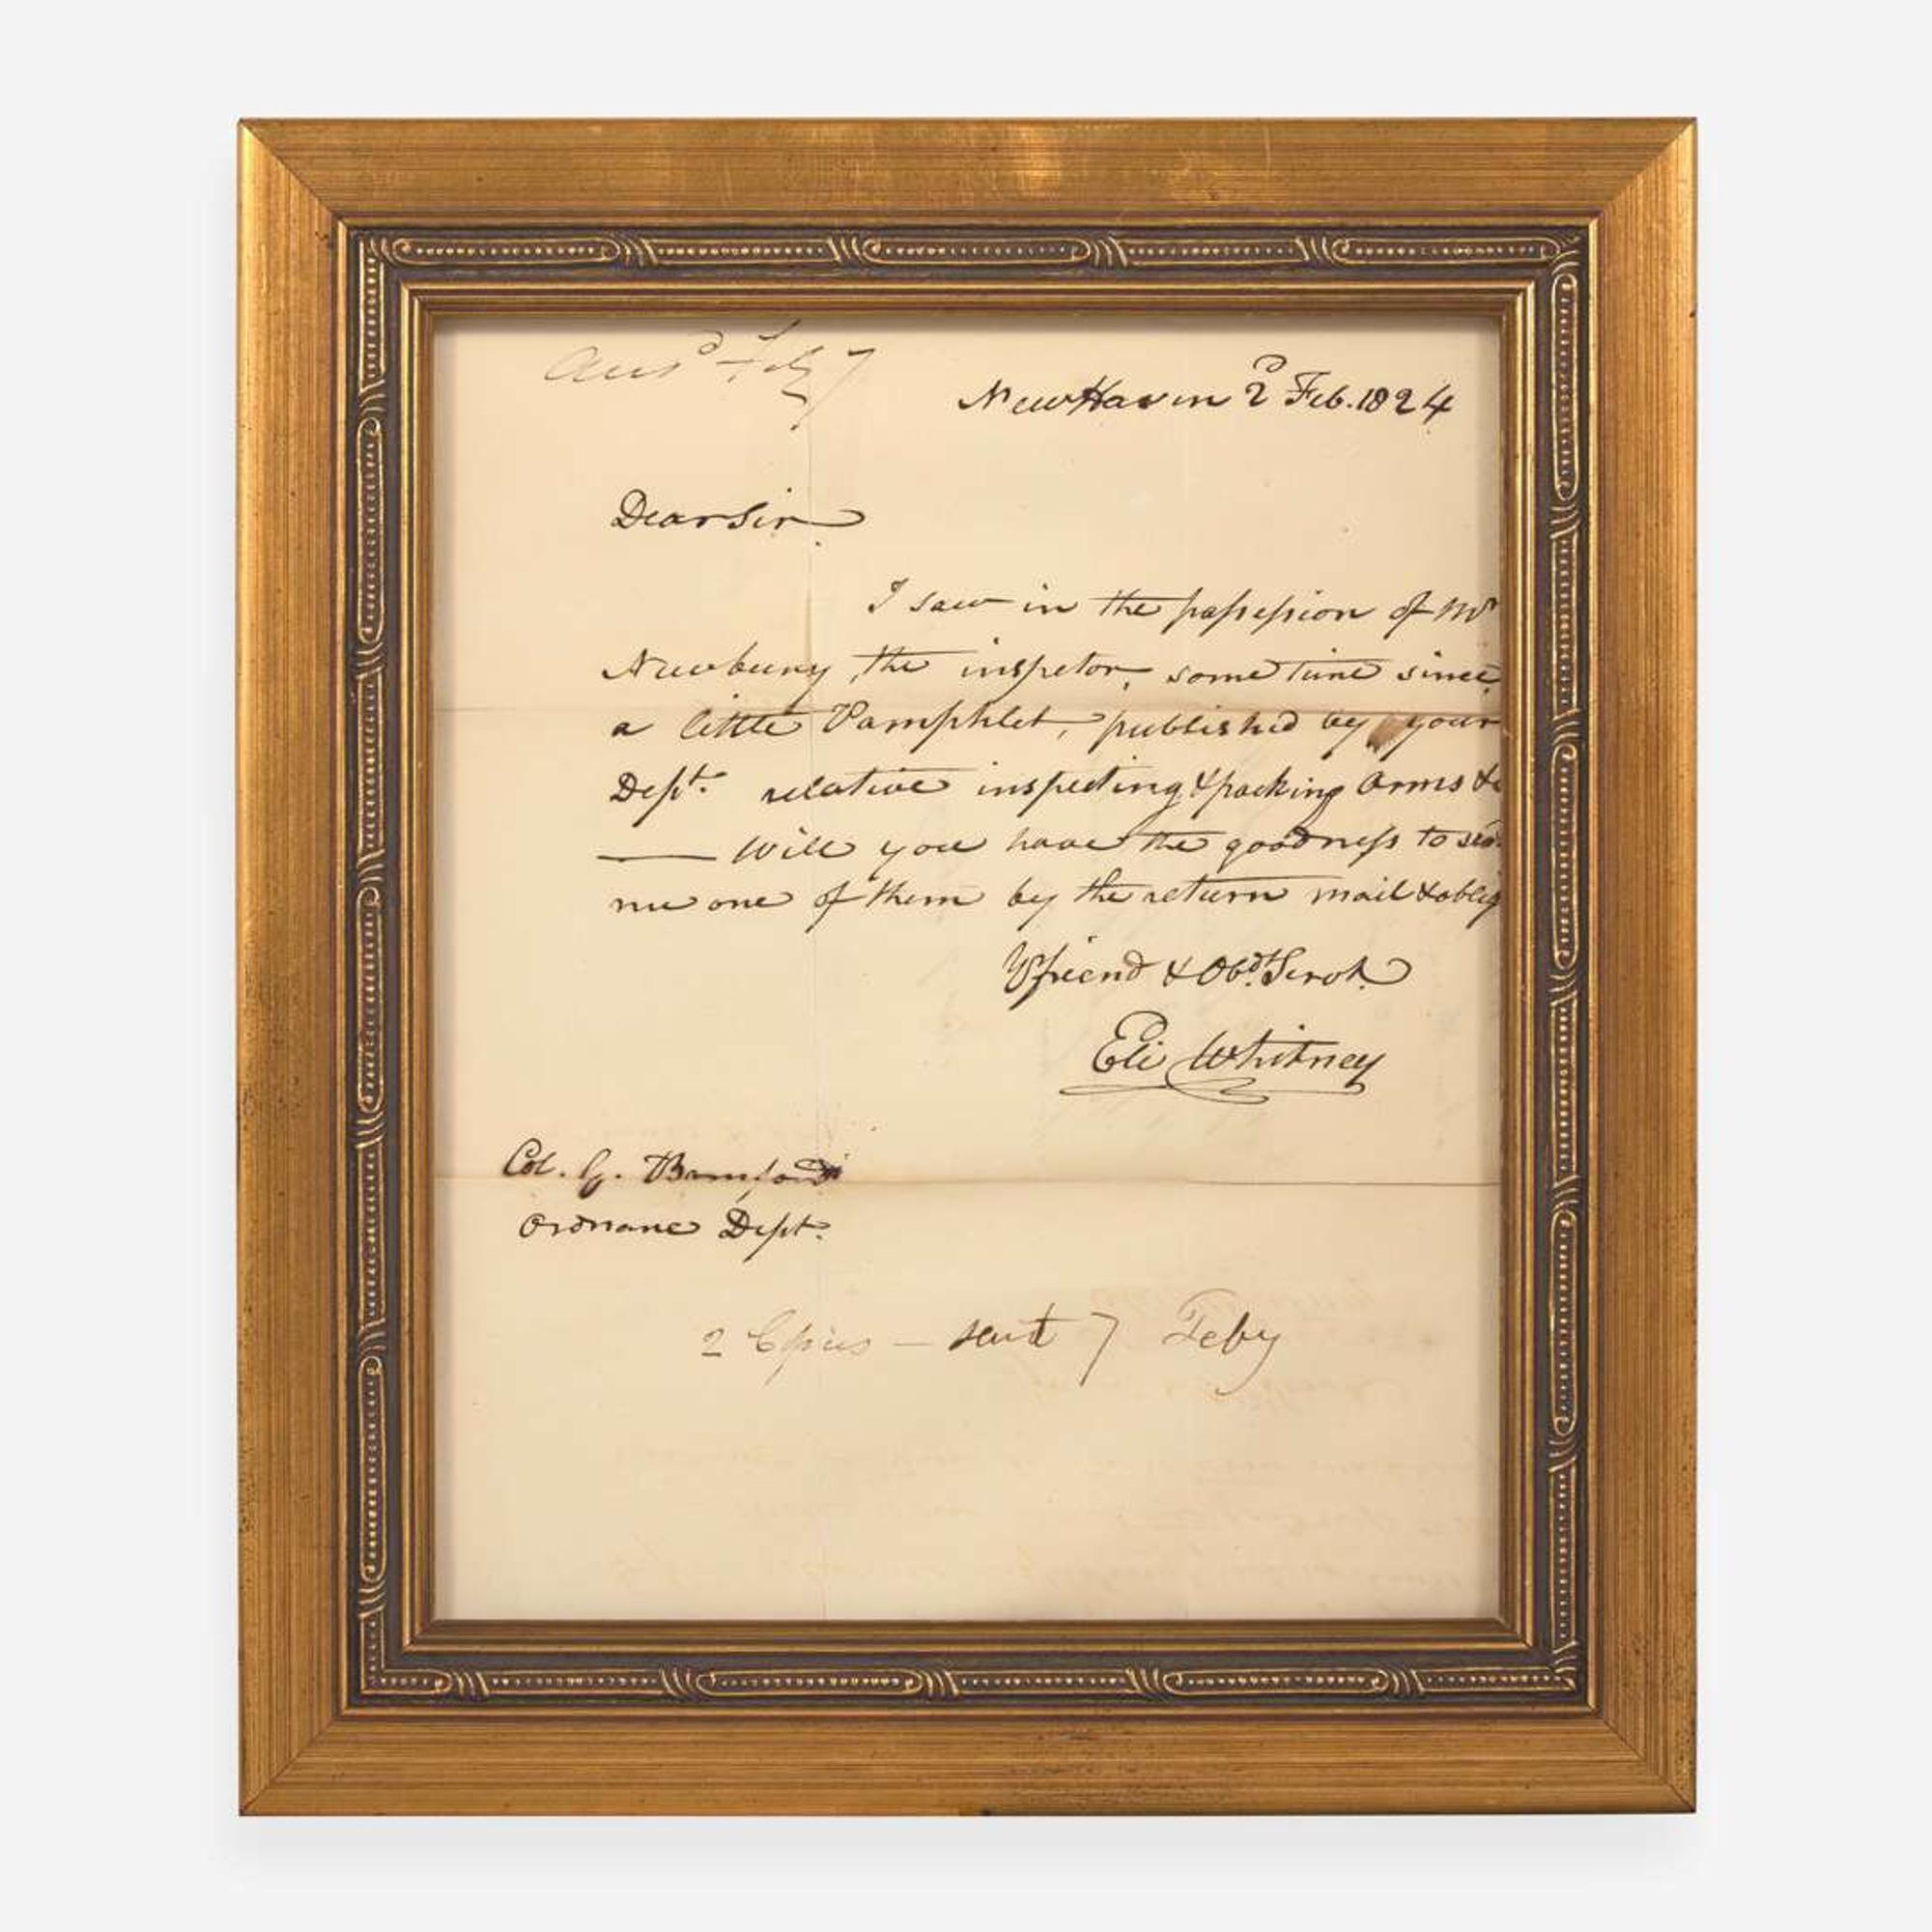 Ansd Feby 7
New Haven 2d Feb. 1824
Dear Sir
I saw in the possession of Mr
Newbury, the inspetor, some time since,
a little Pamphlet, published by your
Dept. relative inspecting & packing Arms &c
— Will you have the goodness to send
me one of them by the return mail & oblig
Yr friend & Obdt. Servt.
Eli Whitney
Col. G. Bomford
Ordnance Dept.
2 Copies — sent 7 Feby